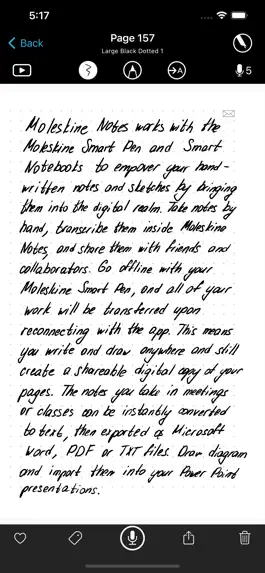 5:17
Back
Page 157
Large Black Dotted 1
A
5
Moleskine Notes works with the
Moleskine Smart Pen and Smart
Notebooks to empower your hand-
written notes and sketches by bringing
them into the digital realm. Take notes by
hand, transcribe them inside Moleskine
Notes, and share them with friends and
collaborators. Go offline with your
Moleskine Smart Pen, and all of your
work will be transferred upon
reconnecting with the app. This means
you write and draw anywhere and still
create a shareable digital copy of your
pages. The notes you take in meetings
or classes can be instantly converted
to text, then exported as Microsoft
Word, PDF or TXT files. Draw diagram
and import them into your Power Point
presentations.